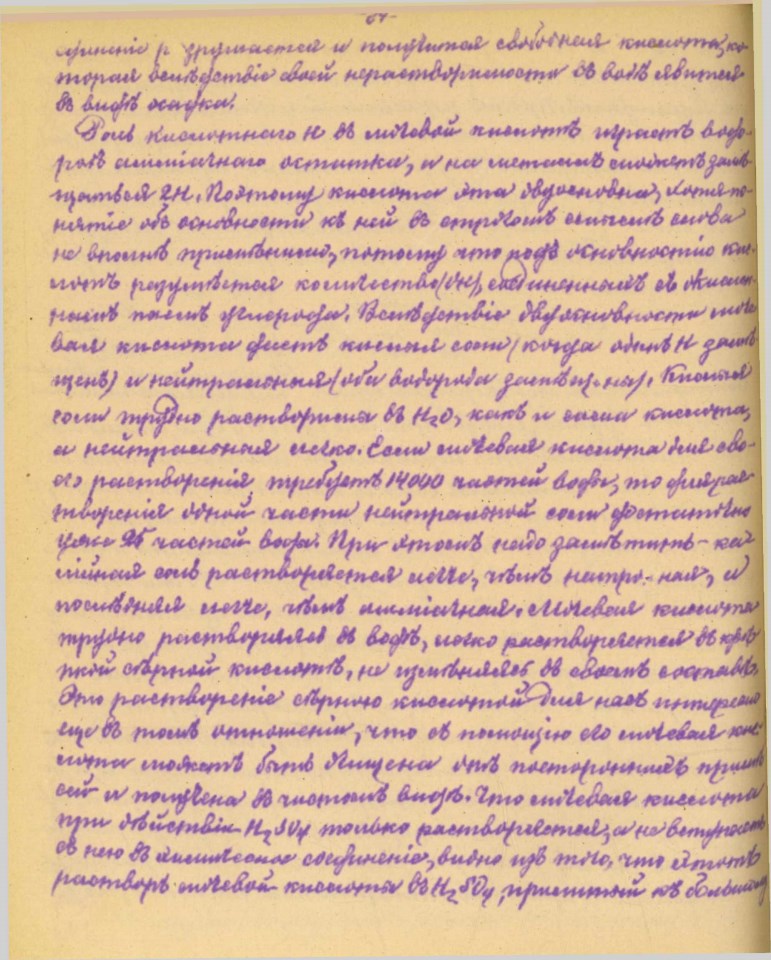 единеніе разрушается и получится свободная кислота, ко-
торая вслѣдствіе своей нерастворимости въ водѣ явится
въ видѣ осадка.
Роль кислотнаго H въ мочевой кислотѣ играетъ водо-
родъ амміачнаго остатка, и на металлъ можетъ замѣ-
щаться 2H. Поэтому кислота эта двуосновна, хотя по-
нятіе объ основности къ ней въ строгомъ смыслѣ слова
не вполнѣ примѣнимо, потому что подъ основностію кис-
лотъ разумѣется количество (OH), соединенныхъ съ окислен-
нымъ паемъ углерода. Вслѣдствіе двуосновности моче-
вая кислота даетъ кислыя соли (когда одинъ H замѣ-
щенъ) и нейтральныя (оба водорода замѣщены). Кислыя
соли трудно растворимы въ H₂O, какъ и сама кислота,
а нейтральная легко. Если мочевая кислота для сво-
его растворенія требуетъ 14000 частей воды, то для рас-
творенія одной части нейтральной соли достаточно
уже 35 частей воды. При этомъ надо замѣтить - ка-
лійная соль растворяется легче, чѣмъ натро-ная, и
послѣдняя легче, чѣмъ амміачная. Мочевая кислота
трудно растворяясь въ водѣ, легко растворяется въ крѣ-
пкой сѣрной кислотѣ, не измѣняясь въ своемъ составѣ.
Это раствореніе сѣрною кислотой для насъ интересно
еще въ томъ отношеніи, что съ помощію его мочевая кис-
лота можетъ быть очищена отъ постороннихъ примѣ-
сей и получена въ чистомъ видѣ. Что мочевая кислота
при дѣйствіи H₂SO₄ только растворяется, а не вступаетъ
съ нею въ химическое соединеніе, видно изъ того, что этотъ
растворъ мочевой кислоты въ H₂SO₄, прилитый къ большому